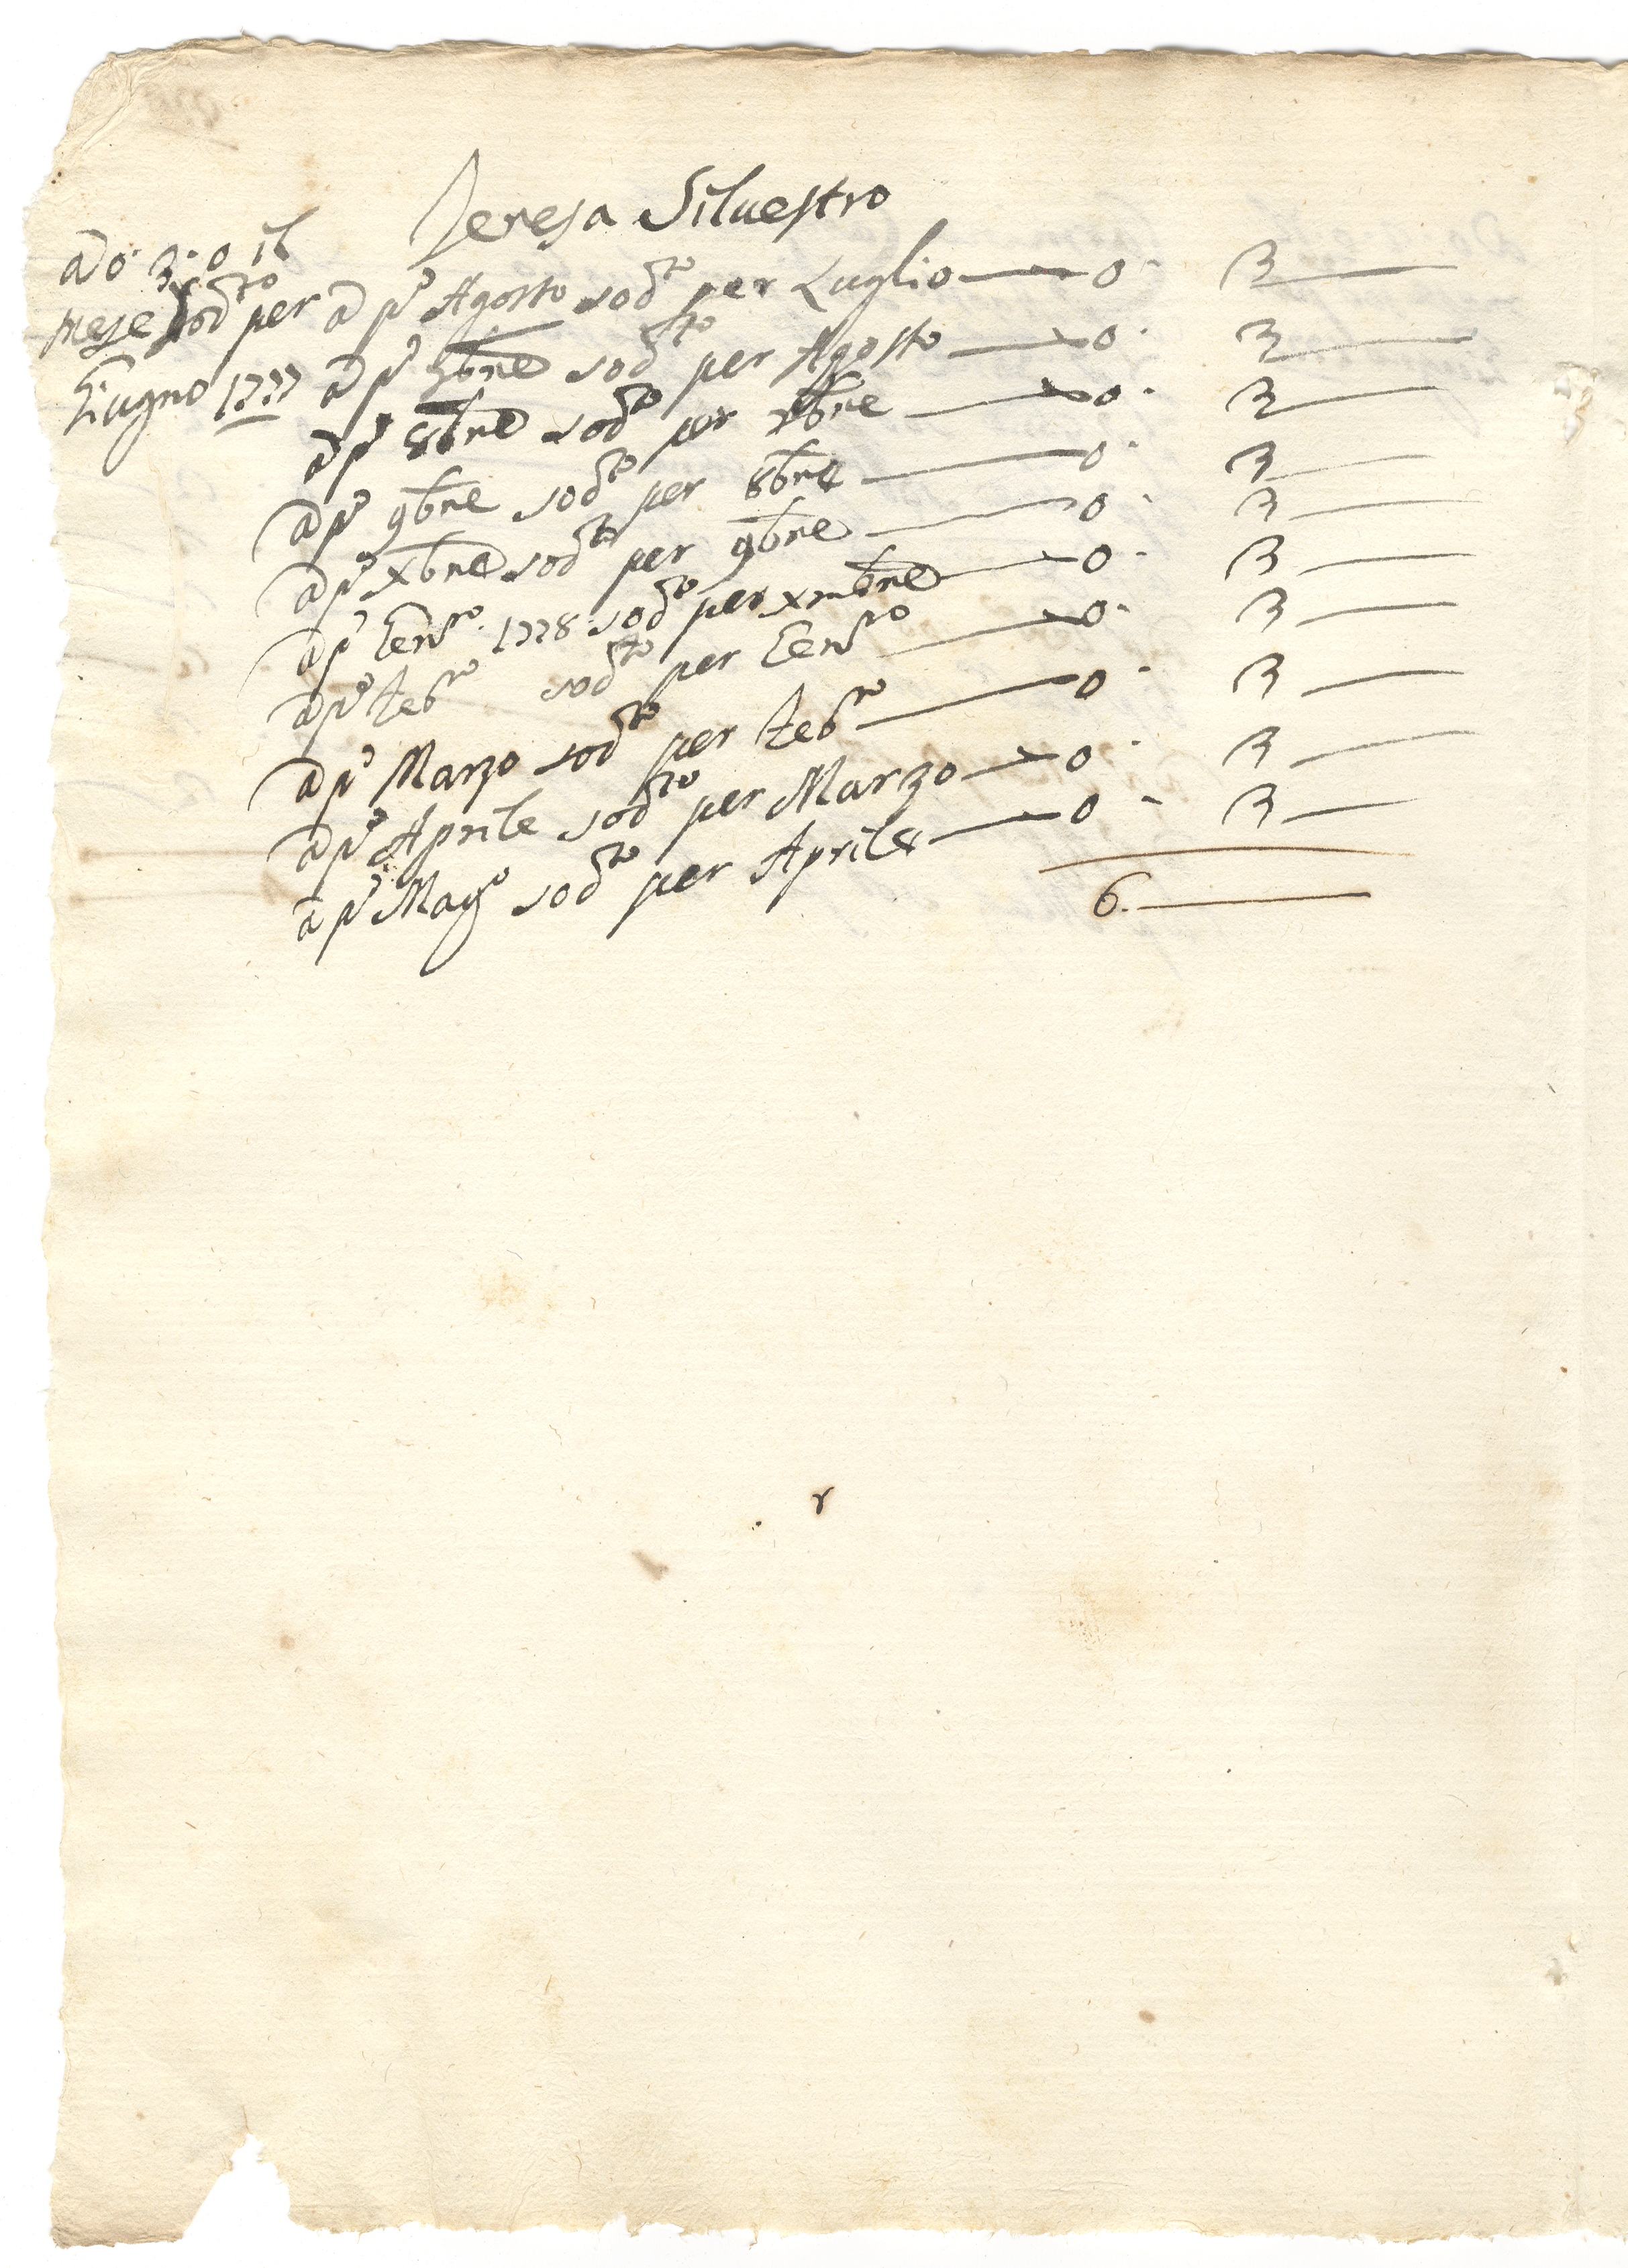 Teresa Siluestro
a o. 3. o il
mese sodto per
Giugno 1777
a po Agosto sodto per Luglio — 0. 3 —
a po 7bre sodto per Agosto — 0. 3 —
a po 8bre sodto per 7bre — 0. 3 —
a po 9bre sodto per 8bre — 0. 3 —
a po xbre sodto per 9bre — 0. 3 —
a po Genro. 1778 sodto per xmbre — 0. 3 —
a po Febro sodto per Genro — 0. 3 —
a po Marzo sodto per Febro — 0. 3 —
a po Aprile sodto per Marzo — 0. 3 —
a po Mago sodto per Aprile — 0 - 3 —
6. —